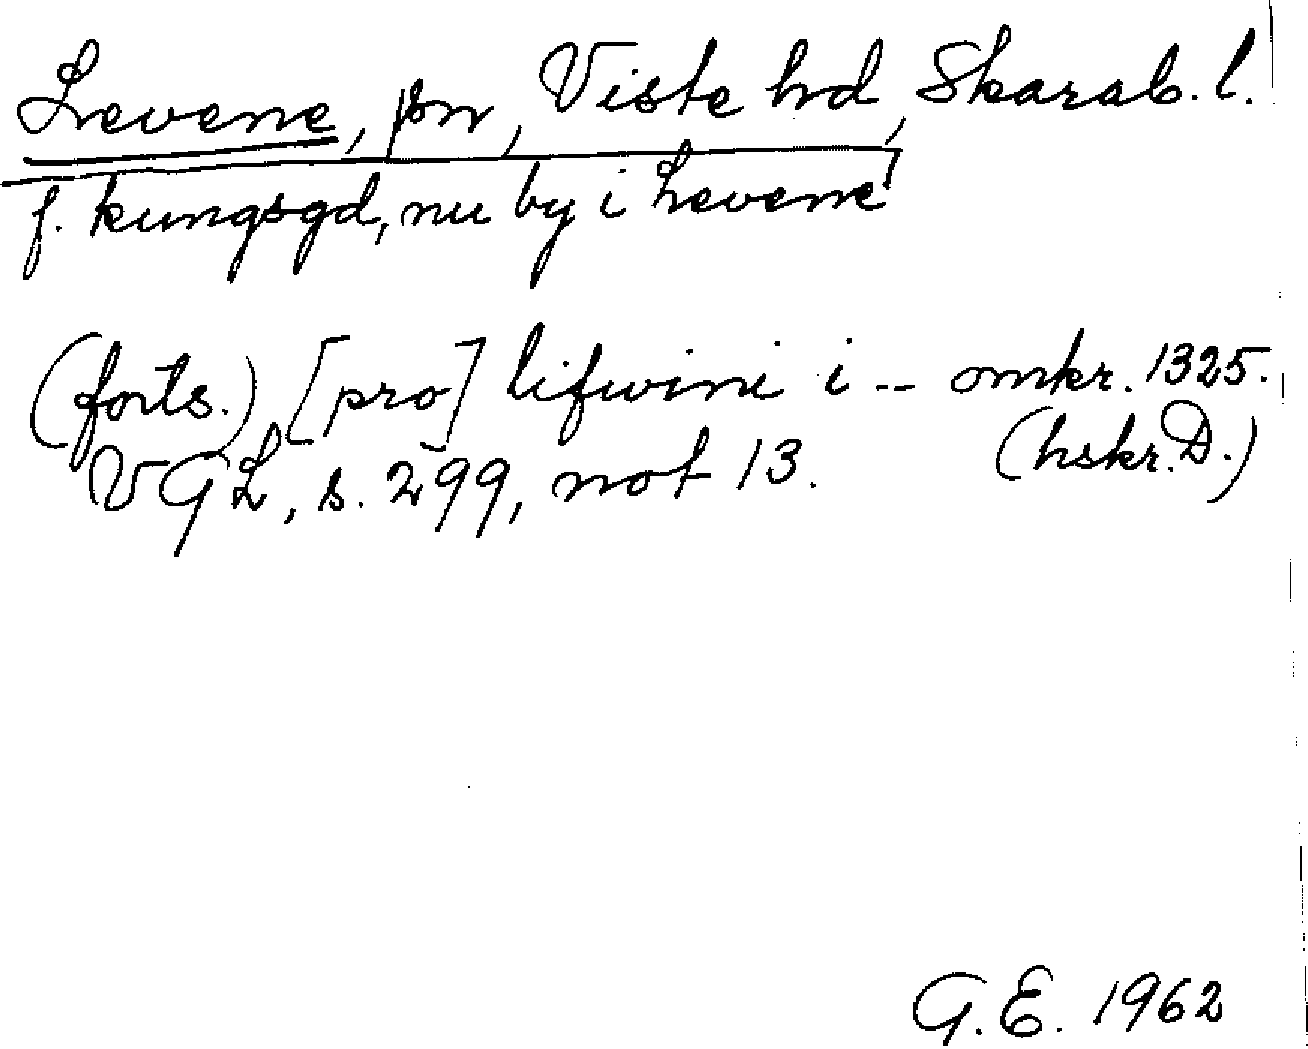 Levene, sn, Viste hd, Skarab. l.
f. kungsgd, nu by i Levene
(forts.) [pro] lifwini i -- omkr. 1325.
VGL, s. 299, not 13. (hskr. D.)
G.E. 1962